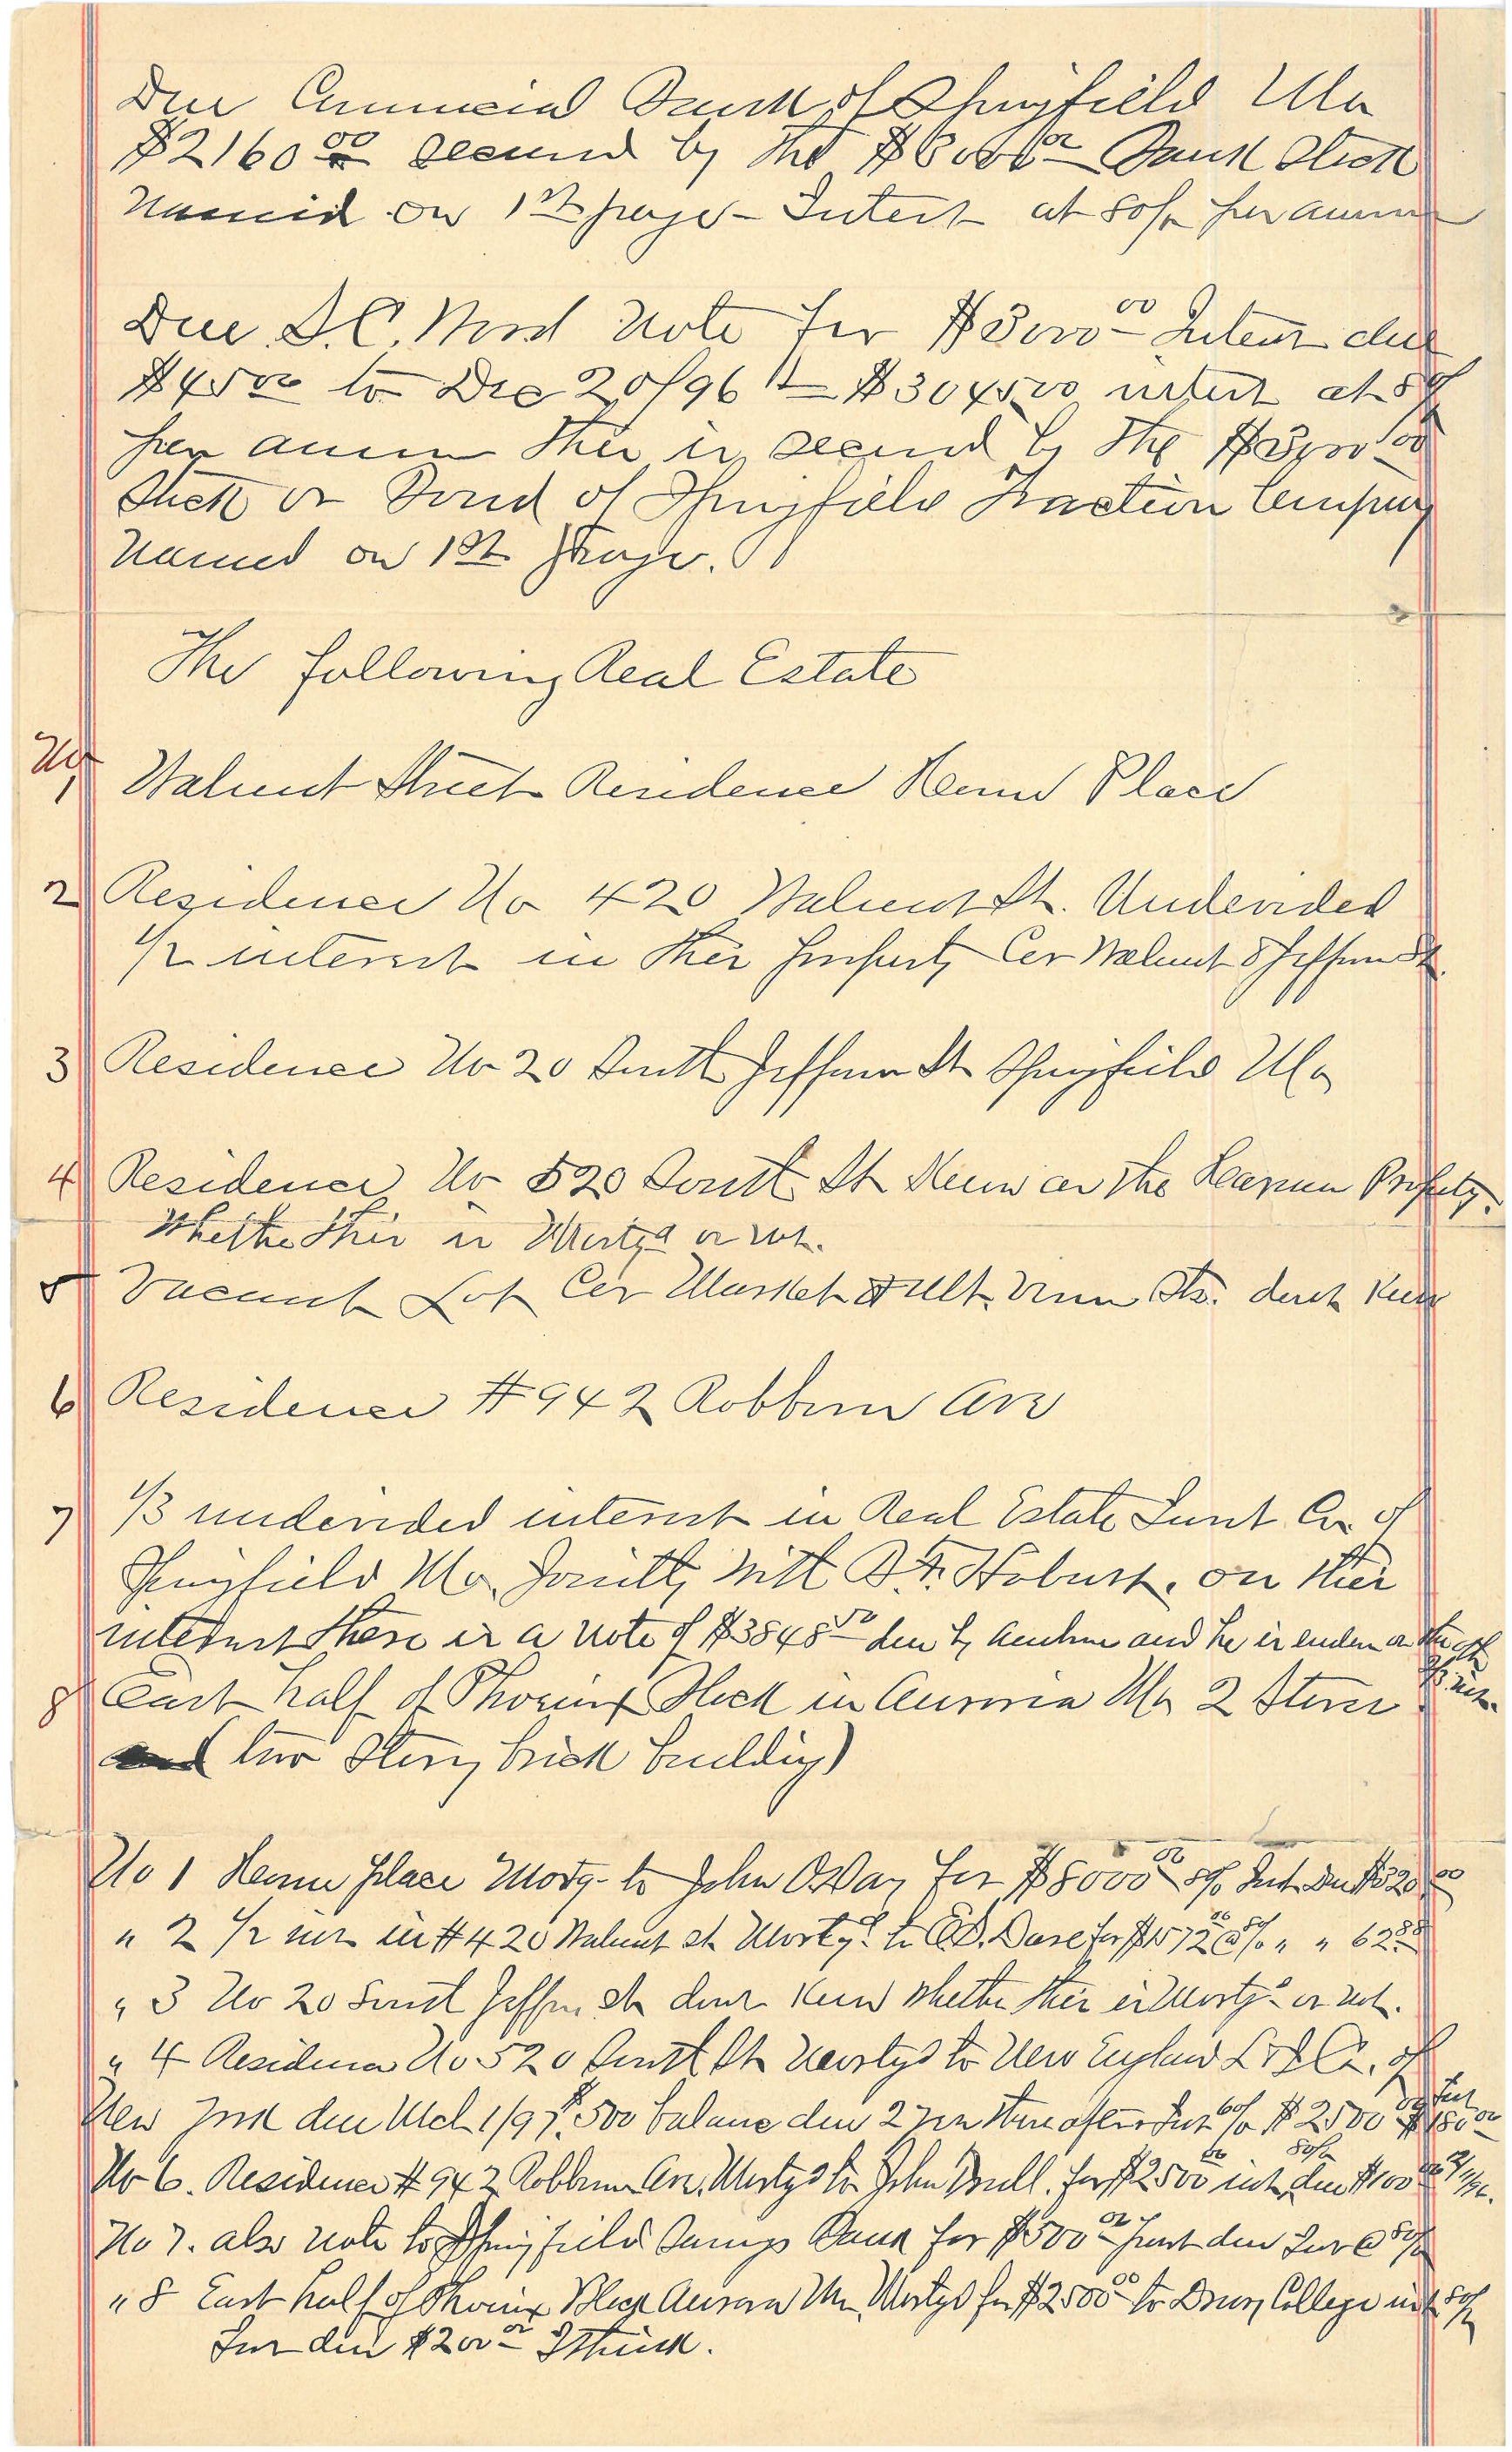 Due Commercial Bank of Springfield Mo
$2160 00 secured by the $3000 00 Bank Stock
Named on 1st page - Interest at 8% per annum
Due S. C. note for $3000 00 Interest due
$45 00 to Dec 20/96 = $3045 00 interest at 8%
per annum this is secured by the 00
Stock or Bond of Springfield Traction Company
Named on 1st page.
The following Real Estate
No 1 Walnut Street Residence Home Place
2 Residence No 420 Walnut St. Undevided
1/2 interest in this property Cor Walnut & Jefferson St.
3 Residence No 20 South Jefferson St Springfield Mo
4 Residence No 520 South St Known as the Property.
Whether this is Mortgd or not.
5 Vacant Lot Cor Market & Mt. Sts. dont Know
6 Residence #942 Robberson Ave
7 1/3 undevided interest in Real Estate Co. of
Springfield Mo. Jointly with B. F. Hobart. on this
interest there is a note of $3848 50 due by and he is on the
1/3 int.
8 East half of Phoenix Block in Aurora Mo 2 Stores
(two Story brick building)
No 1 Home place Mortg. to John O Day for $8000 00 8% Int. Due $320 00
" 2 1/2 int in #420 Walnut st Mortgd. to for $1572 00 8% " " 62 88
" 3 No 20 South Jefferson St dont Know whether this is Mortgd or not.
" 4 Residence No 520 South St Mortgd to New England L & T Co. of
New York due Mch 1/97 $500 balance due 2 yrs thereafter Int 6% $2500 00 Int $150 00
No 6. Residence #942 Robberson Ave. Mortgd to John for $2500 00 int 8% due $100 00
No 7. also note to Springfield Savings Bank for $500 00 due Int @ 8%
" 8 East half of Phoenix Block Aurora Mo. Mortgd for $2500 00 to Drury College int 8%
Int due $200 00 I think.